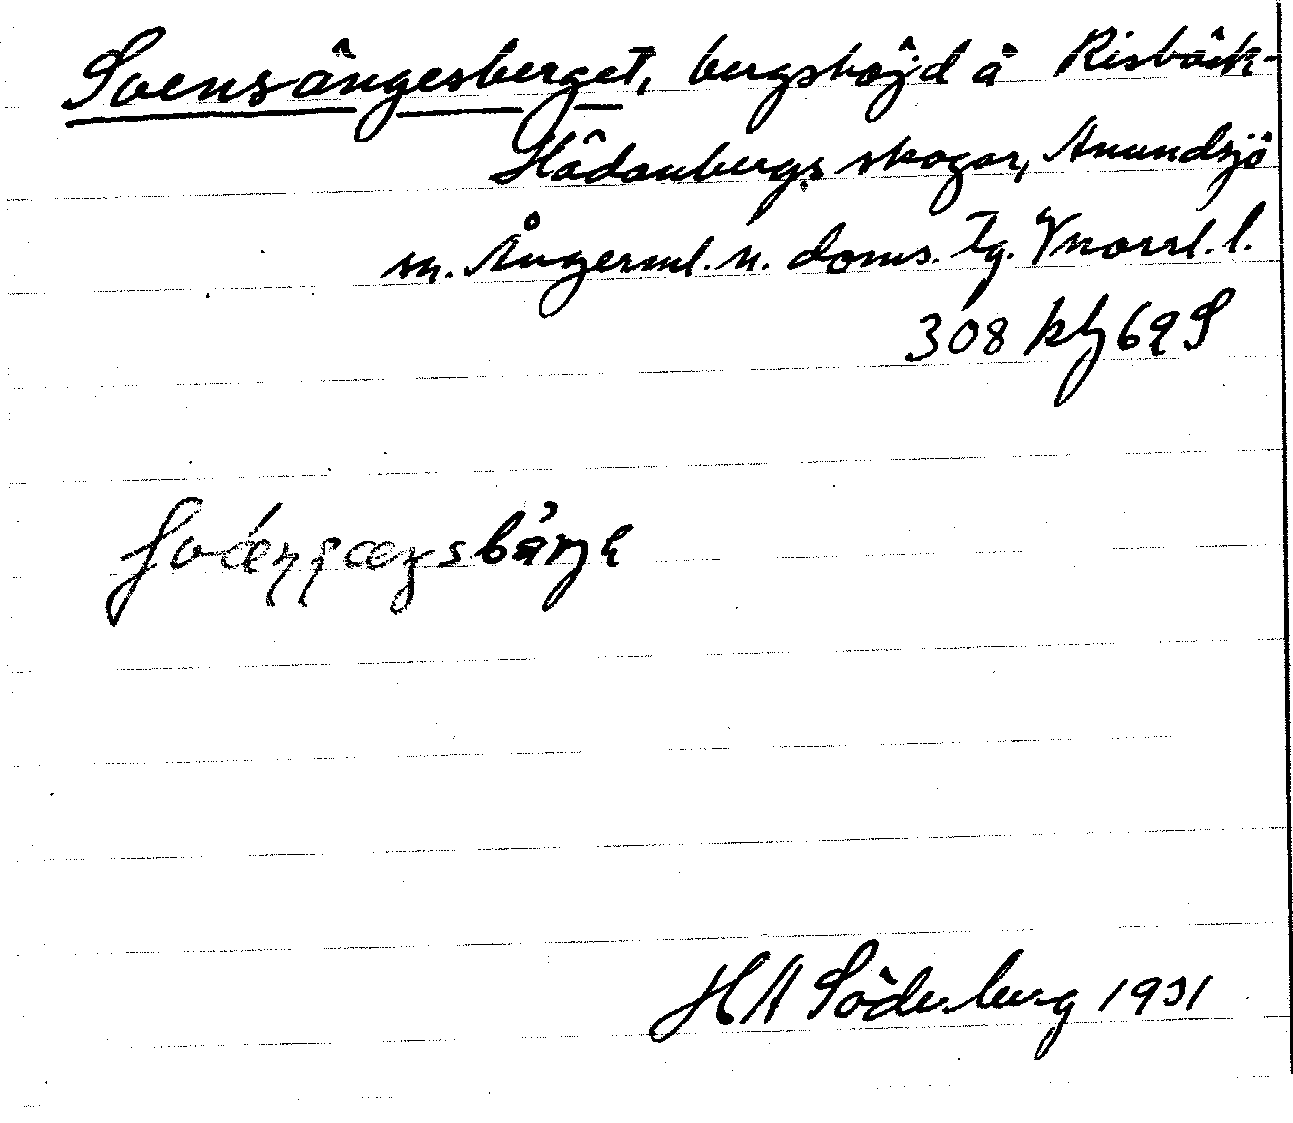 Svensängesberget, bergshöjd å Risbäck-
Hädanbergs skogar, Anundsjö
sn. Ångerml. n. doms. tg. Vnorrl. l.
308 kbl 69 S
H A Söderberg 1931